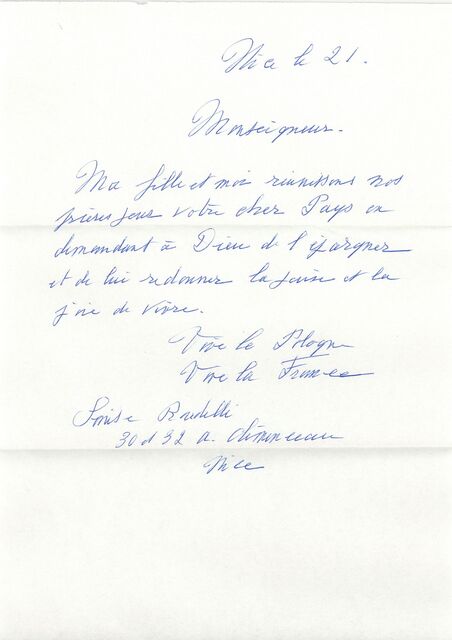 Nice le 21.
Monseigneur.
Ma fille et moi réunissons nos
prières pour votre cher Pays en
demandant à Dieu de l'épargner
et de lui redonner la paix et la
joie de vivre.
Vive la Pologne
Vive la France
Louise
30 et 32 a. Clémenceau
Nice